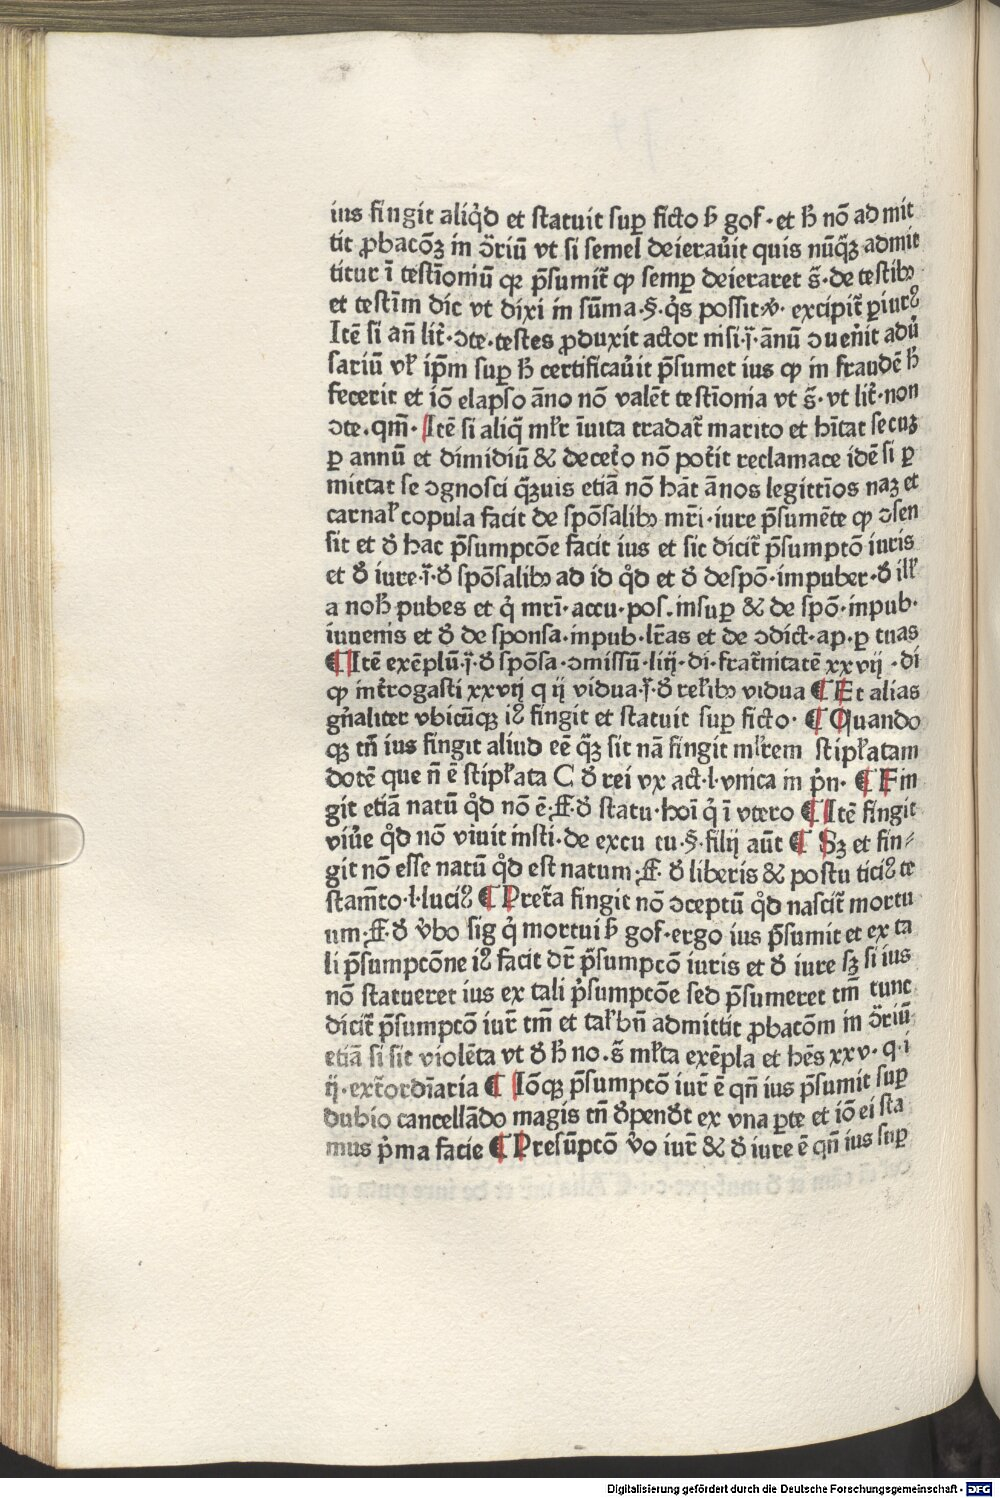 ius fingit aliq̇d et statuit suꝑ ficto ħ gof·et ħ nō admit
tit ꝓbacōꝫ in ɔ̄riū vt si semel deieraũit quis nūq̄ꝫ admit
titur ī testīoniū qꝛ p̄sumit̄ ꝙ semꝑ deieraret s̄·de testibꝫ
et testīm dic vt dixi in sūma·§·q̇s possit·ꝟ· excipit̄ ꝑiurꝰ
Itē si an̄ lit̄·ɔte·testes ꝓduxit actor nisi·j̄·ānū ɔuen̄it adũ
sariū vł ip̄m suꝑ ħ certificaũit p̄sumet ius ꝙ in fraudē ħ
fecerit et iō elapso āno nō valēt testīonia vt s̄·vt lit̄·non
ɔte.qm̄· Itē si aliq̄ młr īuita tradat̄ marito et hītat secuꝫ
ꝑ annū et dimidiū & decet̄o nō pot̄it reclamace idē si ꝑ
mittat se ɔgnosci q̄ꝫuis etiā nō hāt ānos legittīos naꝫ et
carnał copula facit de spōsalibꝫ mr̄i·iure p̄sumēte ꝙ ɔsen
sit et ð hac p̄sumpcōe facit ius et sic dicit̄ p̄sumptō iuris
et ð iure·j̄·ð spōsalibꝫ ad id q̇d et ð despō·impuber·ð ilł
a noħ pubes et q̇ mr̄i·accu·pos.insuꝑ & de spō·inpub·
iuuenis et ð de sponsa·inpub·lr̄as et de ɔdict·ap·ꝑ tuas
¶ Itē exēplū·j̄·ð spōsa·ɔmissū·liij·di·frat̄nitatē xxvij·di
ꝙ int̄rogasti xxvij q ij vidua·j̄·ð rełibꝫ vidua ¶ Et alias
gn̄aliter vbicūqꝫ iꝰ fingit et statuit suꝑ ficto· ¶ Quando
qꝫ tn̄ ius fingit aliud eē q̄ꝫ sit nā fingit młrem stipłatam
dotē que n̄ ē stipłata C ð rei vx act·l·vnica in ṗn· ¶ Fin
git etiā natū q̇d nō ē·ff·ð statu·hoī q̇ ī vtero ¶ Itē fingit
viũe q̇d nō viuit insti·de excu tu·§·filij aūt ¶ Sꝫ et fin⸗
git nō esse natū q̇d est natum·ff· ð liberis & postu ticiꝰ te
stam̄to·l·luciꝰ ¶ Pret̄a fingit nō ɔceptū q̇d nascit̄ mortu
um·ff·ð v̇bo sig q̇ mortui ħ gof·ergo ius p̄sumit et ex ta
li p̄sumpcōne iꝰ facit dr̄ p̄sumpcō iuris et ð iure sꝫ si ius
nō statueret ius ex tali p̄sumpcōe sed p̄sumeret tm̄ tunc
dicit̄ p̄sumpcō iur̄ tm̄ et tał bn̄ admittit ꝓbacōm in ɔ̄riū
etiā si sit violēta vt ð ħ no·s̄ młta exēpla et hēs xxv·q·i
ij·ext̄ordīaria ¶ Iōqꝫ p̄sumpcō iur̄ ē qn̄ ius p̄sumit suꝑ
dubio cancellādo magis tn̄ ðpenðt ex vna ꝑte et iō ei sta
mus ṗma facie ¶ Presūptō v̇o iur̄ & ð iure ē qn̄ ius suꝑ
Digitalisierung gefördert durch die Deutsche Forschungsgemeinschaft - DFG